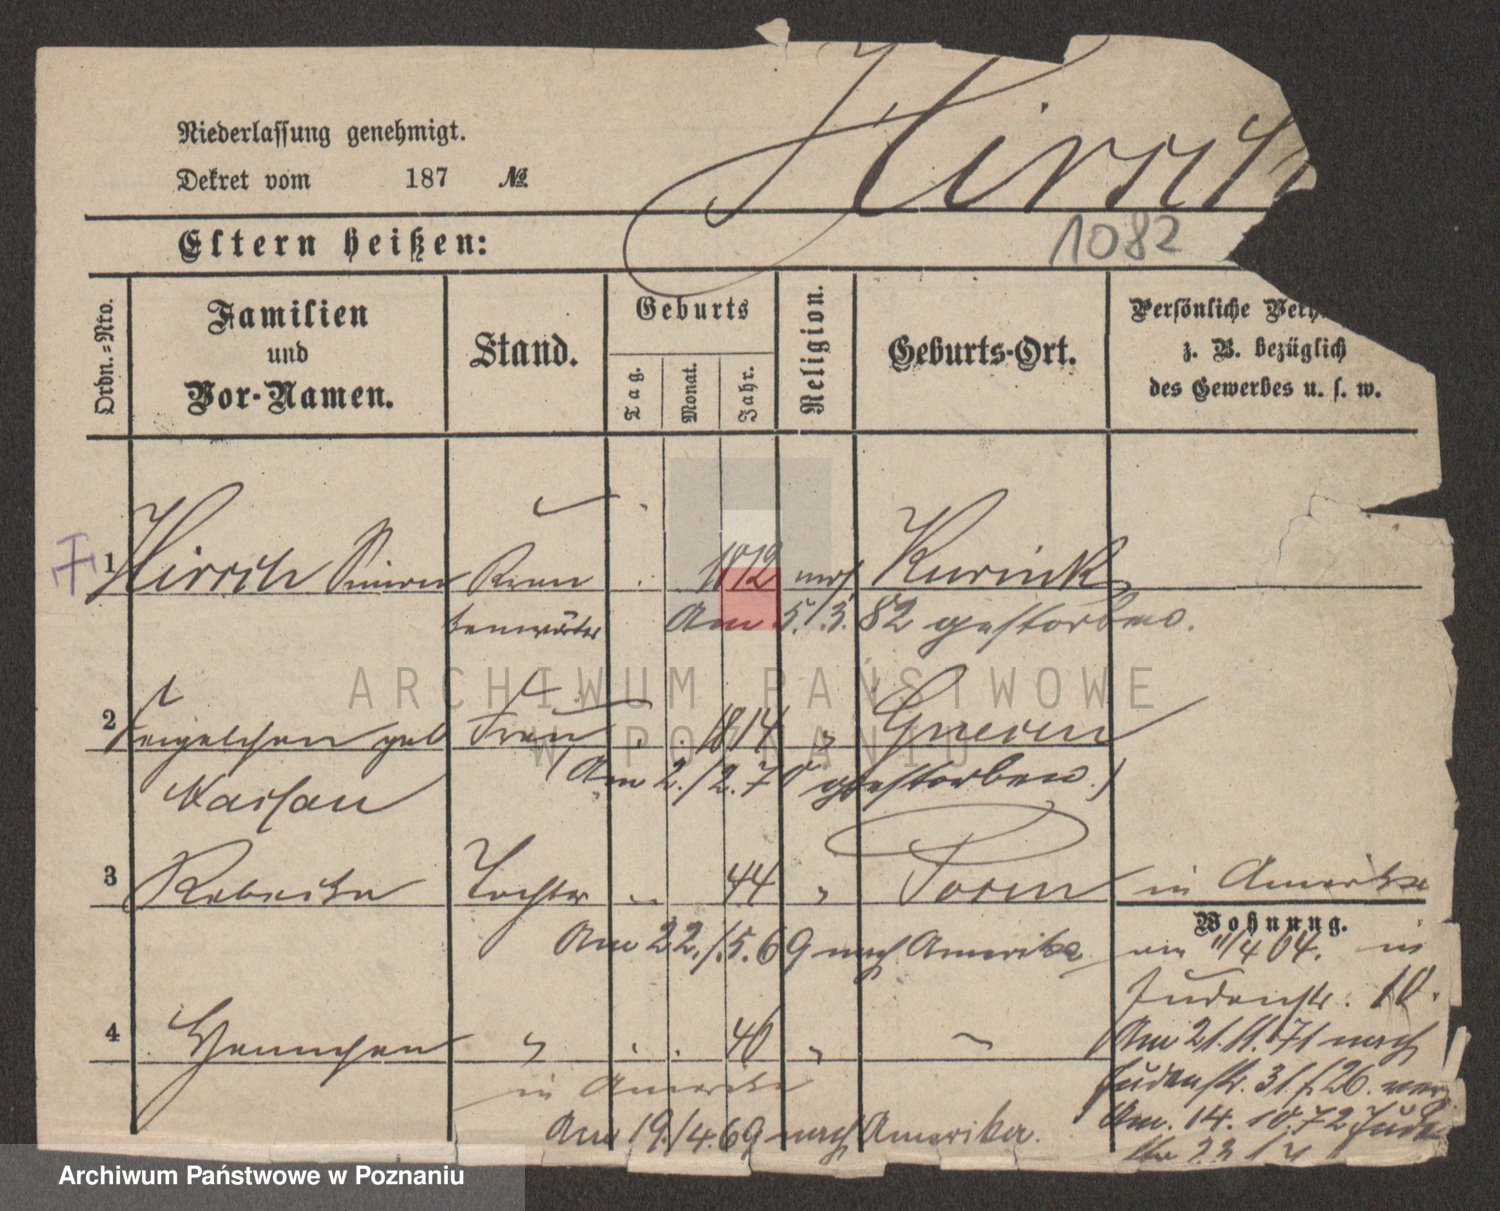 Hirsch
Niederlassung genehmigt.
Dekret vom 187 №
1082
Eltern heißen:
Ordn.-Nro.
Familien
und
Vor-Namen.
Stand.
Geburts
Tag.
Monat.
Jahr.
Religion.
Geburts-Ort.
Persönliche
z. B. bezüglich
des Gewerbes u. s. w.
1 Hirsch Simon 1812 mos Kurnik
Am 5./3. 82 gestorben.
2 geb Frau 1814 " Gnesen
(Am 2./2. 70 gestorben.)
3 Rebecka Tochter 44 " Posen in Amerika
Am 22./5. 69 nach Amerika
Wohnung.
11/4 64. in
Judenstr. 10.
4 Hannchen " 46 "
in Amerika
Am 19./4. 69 nach Amerika.
Am 21. 11. 71 nach
Judenstr. 31
Am. 14. 10. 72
ARCHIWUM PAŃSTWOWE
W POZNANIU
Archiwum Państwowe w Poznaniu